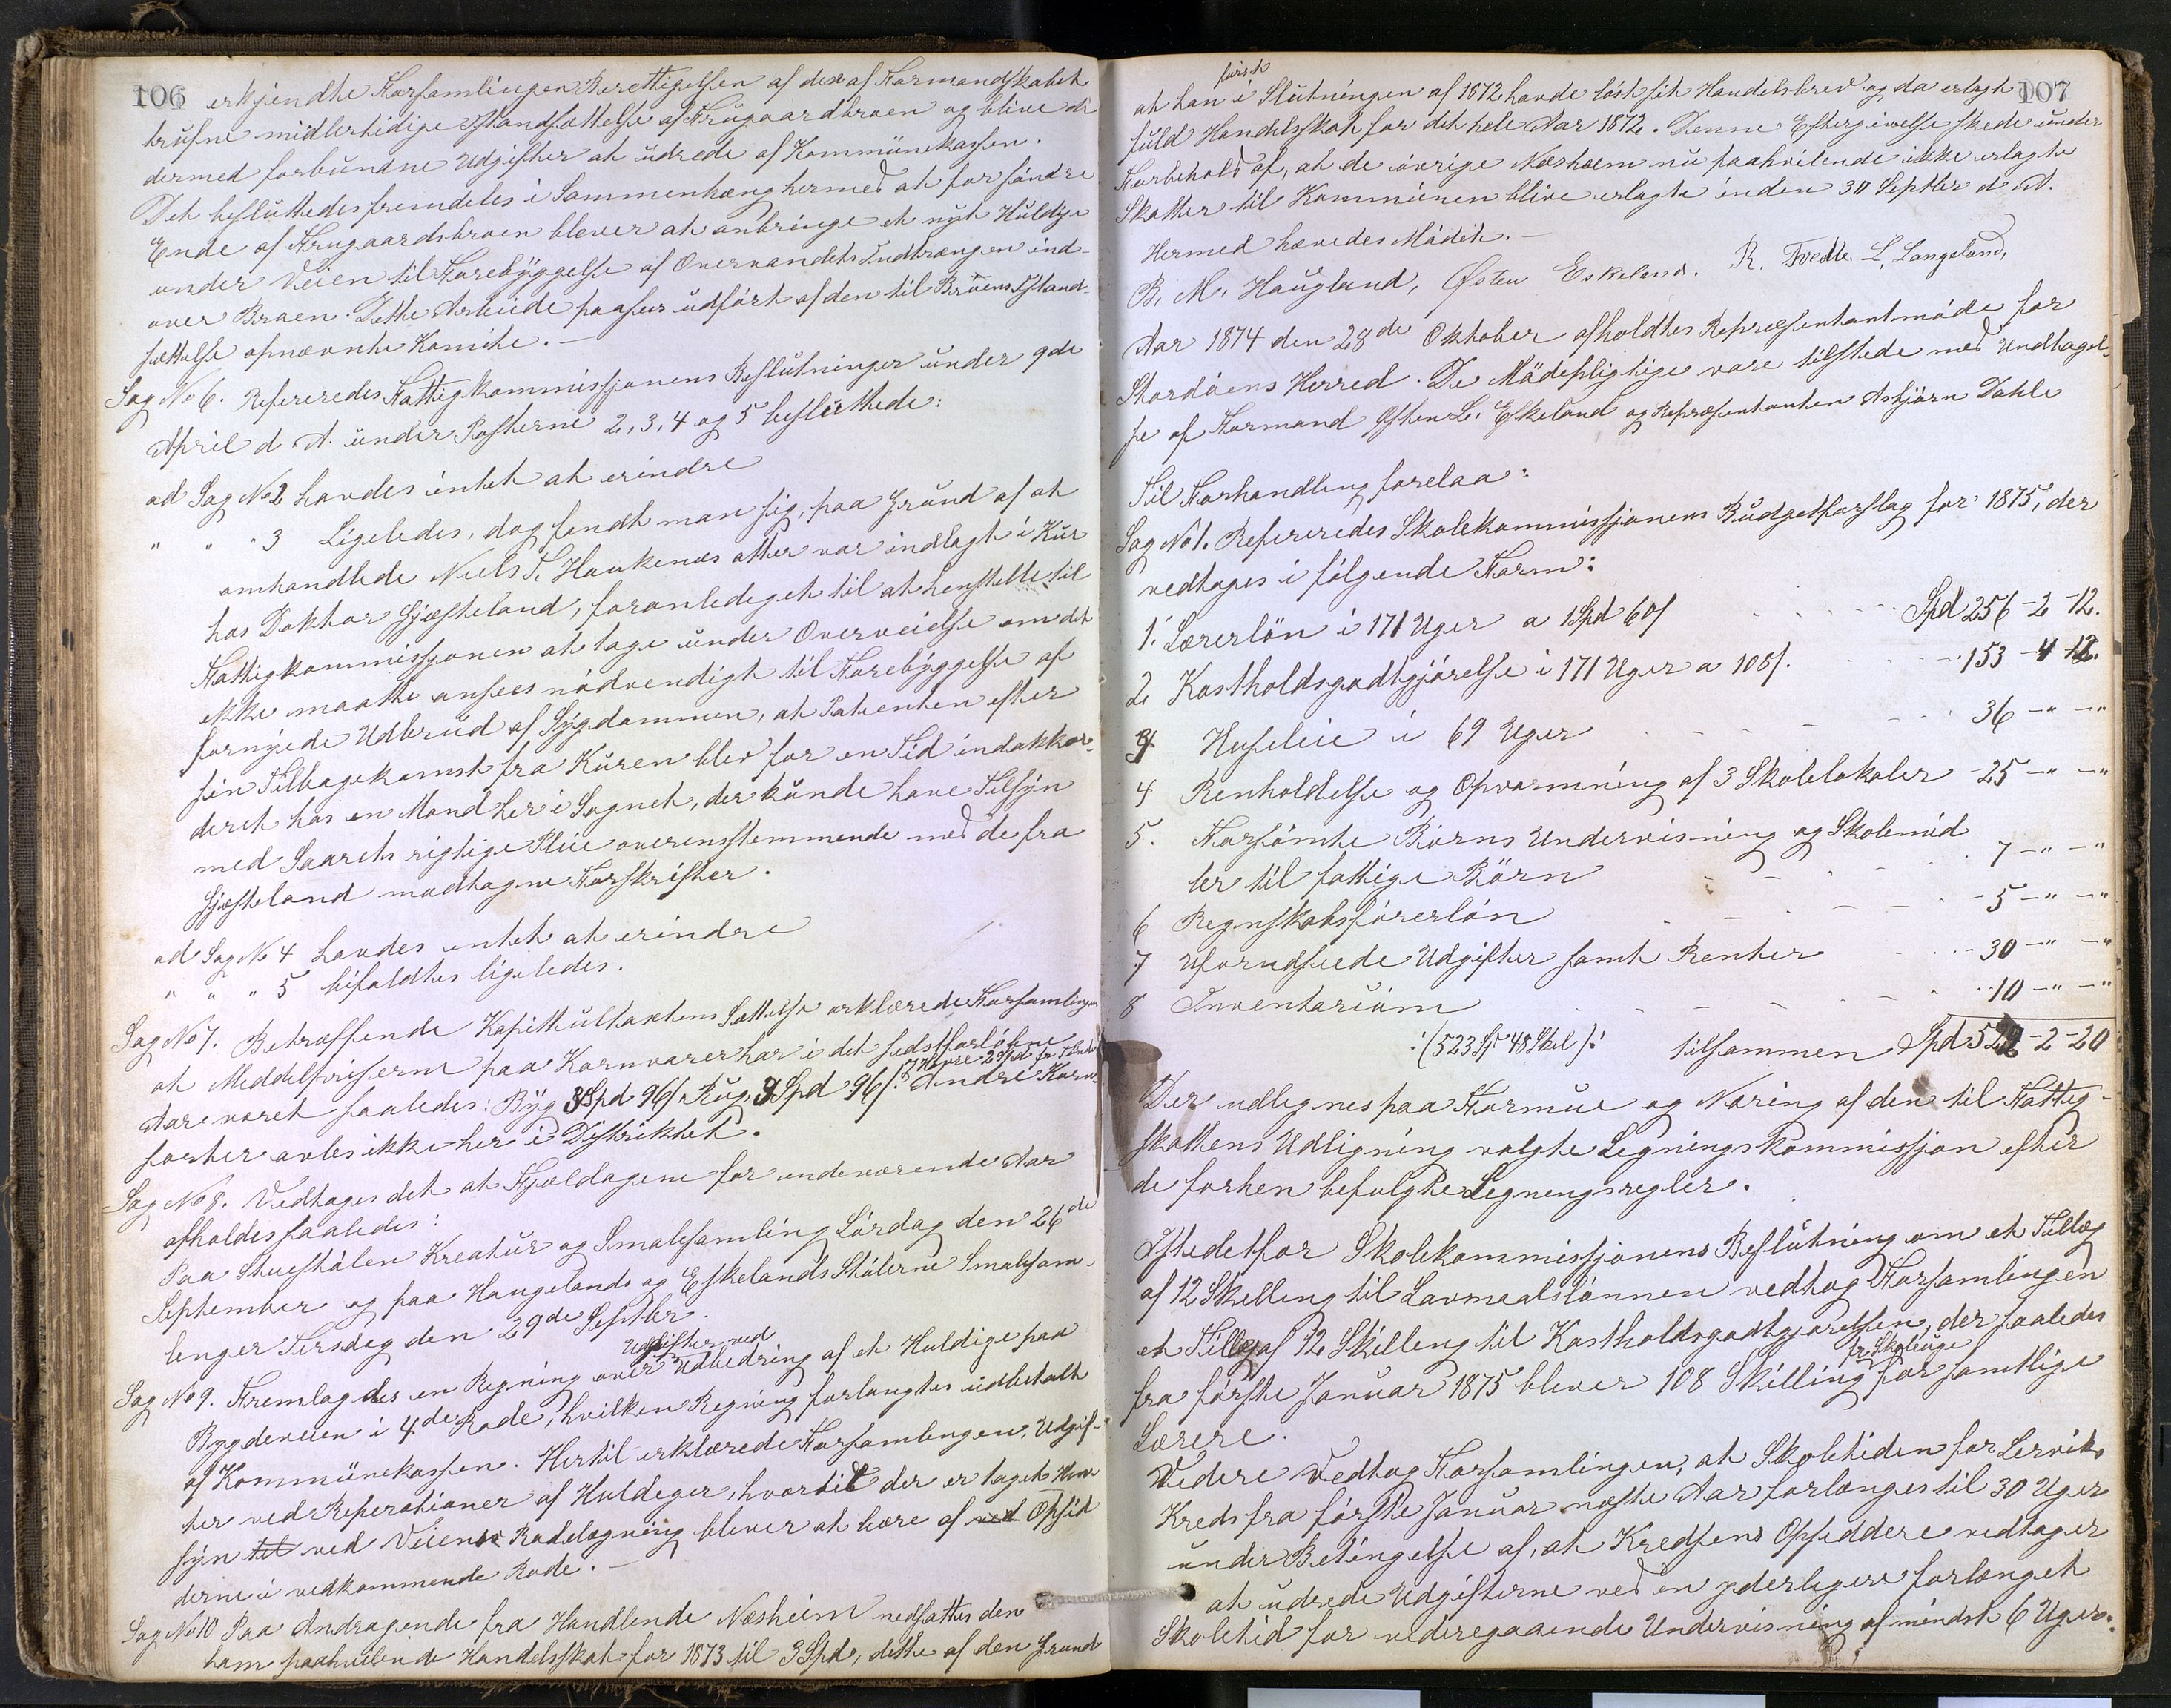 106
erkjendte Forsamlingen Berettigelsen af den af Formandskabet
trufne midlertidige Istandsættelse af Frugaardbroen og blive de
dermed forbundne Udgifter at udrede af Kommunekassen.
Det besluttedes fremdeles i Sammenhæng hermed at for søndre
Ende af Frugaardsbroen bliver at anbringe et nyt Huldige
under Veien til Forebyggelse af Overvandets Indtrængen ind-
over Broen. Dette Arbeide paasees udført af den til Broens Istand-
sættelse opnævnte Komite. —
Sag No 6. Refereredes Fattigkommissjonens Beslutninger under 9de
April d A. under Posterne 2, 3, 4 og 5 besluttede:
ad Sag No 2 havdes intet at erindre
" " " 3 Ligeledes, dog fandt man sig, paa Grund af at
omhandlede Niels T. Haukenæs atter var indlagt i Kur
hos Doktor Gjæsteland, foranlediget til at henstille til
Fattigkommissjonen at tage under Overveielse om det
ikke maatte ansees nödvendigt til Forebyggelse af
fornyede Udbrud af Sygdommen, at Patienten efter
sin Tilbagekomst fra Kuren blev for en Tid indakkor-
deret hos en Mand her i Sognet, der kunde have Tilsyn
med Saarets rigtige Pleie overensstemmende med de fra
Gjæsteland modtagne Forskrifter.
ad Sag No 4 havdes intet at erindre
" " " 5 bifaldtes ligeledes.
Sag No 7. Betræffende Kapitultaxtens Sættelse erklærede Forsamlingen
at Middelpriserne paa Kornvarer har i det sidstforløbne
Aar været saaledes: Byg 3 Spd 96 s, Rug 3 Spd 96 s. Havre 2 Spd pr Tönde Andre Korn-
sorter avles ikke her i Distriktet.
Sag No 8. Vedtages det at Fjældagene for indeværende Aar
afholdes saaledes:
Paa Stuestölen Kreatur og Smalesamling Lördag den 26de
September og paa Haugelands og Eskelands Stölerne Smalesam-
linger Tirsdag den 29de Septbr.
Sag No 9. Fremlagdes en Regning over Udgifter ved Udbedring af et Huldige paa
Bygdeveien i 4de Rode, hvilken Regning forlangtes udbetalt
af Kommunekassen. Hertil erklærede Forsamlingen, Udgif-
ter ved Reperationer af Huldiger, hvortil der er taget Hen-
syn til ved Veiens Rodelægning bliver at bære af ved Opsid
derne i vedkommende Rode. —
Sag No 10 Paa Andragende fra Handlende Næsheim nedsattes den
ham paahvilende Handelsskat for 1873 til 3 Spd, dette af den Grund
107
at han först i Slutningen af 1872 havde löst sit Handelsbrev og da erlagt
fuld Handelsskat for det hele Aar 1872. Denne Eftergivelse skede under
Forbehold af, at de övrige Næsheim nu paahvilende ikke erlagte
Skatter til Kommunen blive erlagte inden 30 Septbr d. A.
Hermed hævedes Mödet. —
B. M. Haugland, Østen Eskeland. R. Tvedte L. Langeland,
Aar 1874 den 28de Oktober afholdtes Repræsentantmöde for
Stordöens Herred. De Mödepligtige vare tilstede med Undtagel-
se af Formand Østen L. Eskeland og Repræsentanten Asbjörn Dahle
Til Forhandling forelaa:
Sag No 1. Refereredes Skolekommissjonens Budgetforslag for 1875, der
vedtages i fölgende Form:
1. Lærerlön i 171 Uger a 1 Spd 60 s Spd 256-2-12.
2 Kostholdsgodtgjörelse i 171 Uger a 108 s. 153-4-12.
3 Husleie i 69 Uger 36-"-"
4 Renholdelse og Opvarmning af 3 Skolelokaler 25-"-"
5. Forsömte Börns Undervisning og Skolemid
ler til fattige Börn 7-"-"
6 Regnskabsförerlön 5-"-"
7 Uforudseede Udgifter samt Renter 30-"-"
8 Inventarium 10-"-"
:/523 Sp 48 Skil/: tilsammen Spd 522-2-20
Der udlignes paa Formue og Næring af den til Fattig-
skattens Udligning valgte Ligningskommissjon efter
de forhen befulgte Ligningsregler.
Istedetfor Skolekommissjonens Beslutning om et Tillæg
af 12 Skilling til Lavmaalslönnen vedtog Forsamlingen
et Tillæg af 12 Skilling til Kostholdsgodtgjörelsen, der saaledes
fra förste Januar 1875 bliver 108 Skilling pr Skoleuge for samtlige
Lærere.
Videre vedtog Forsamlingen, at Skoletiden for Lerviks
Kreds fra förste Januar næste Aar forlænges til 30 Uger
under Betingelse af, at Kredsens Opsiddere vedtager
at udrede Udgifterne ved en yderligere forlænget
Skoletid for videregaaende Undervisning af mindst 6 Uger.